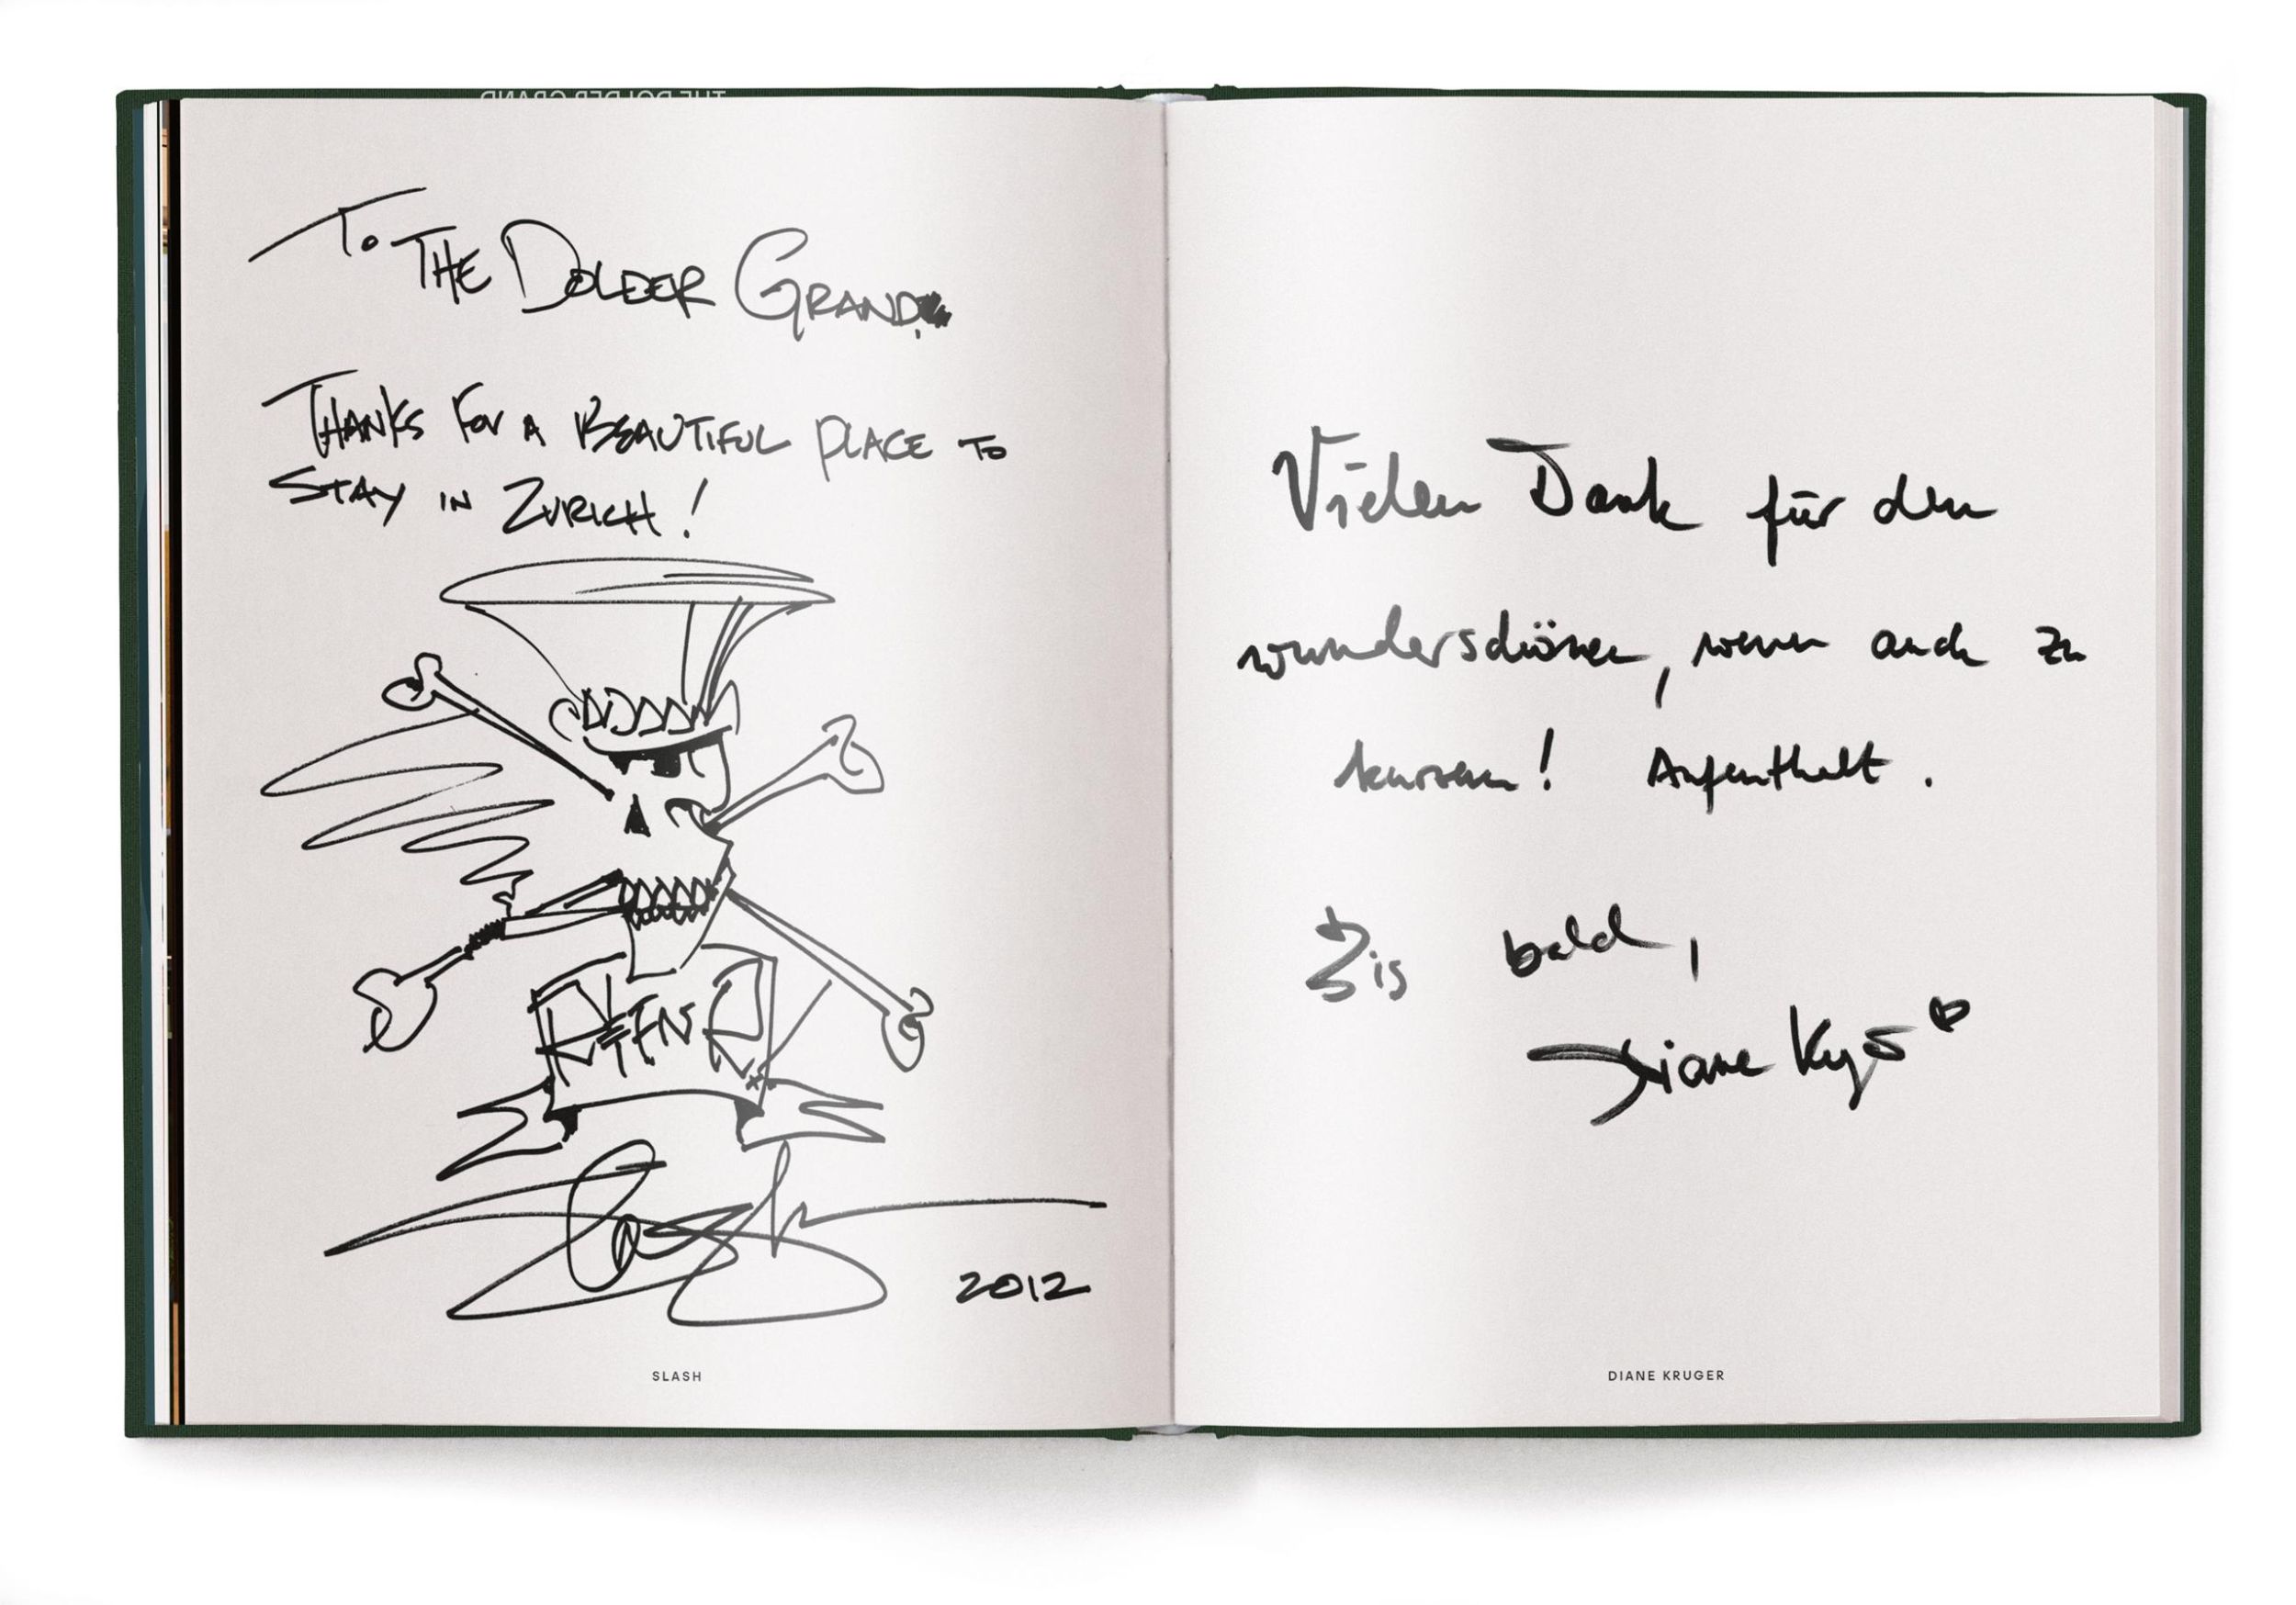 THE DOLDER GRAND
To THE DOLDER GRAND.
THANKS FOR A BEAUTIFUL PLACE TO
STAY IN ZURICH!
Slash
2012
SLASH
Vielen Dank für den
wunderschönen, wenn auch zu
kurzen! Aufenthalt.
Bis bald,
Diane
DIANE KRUGER